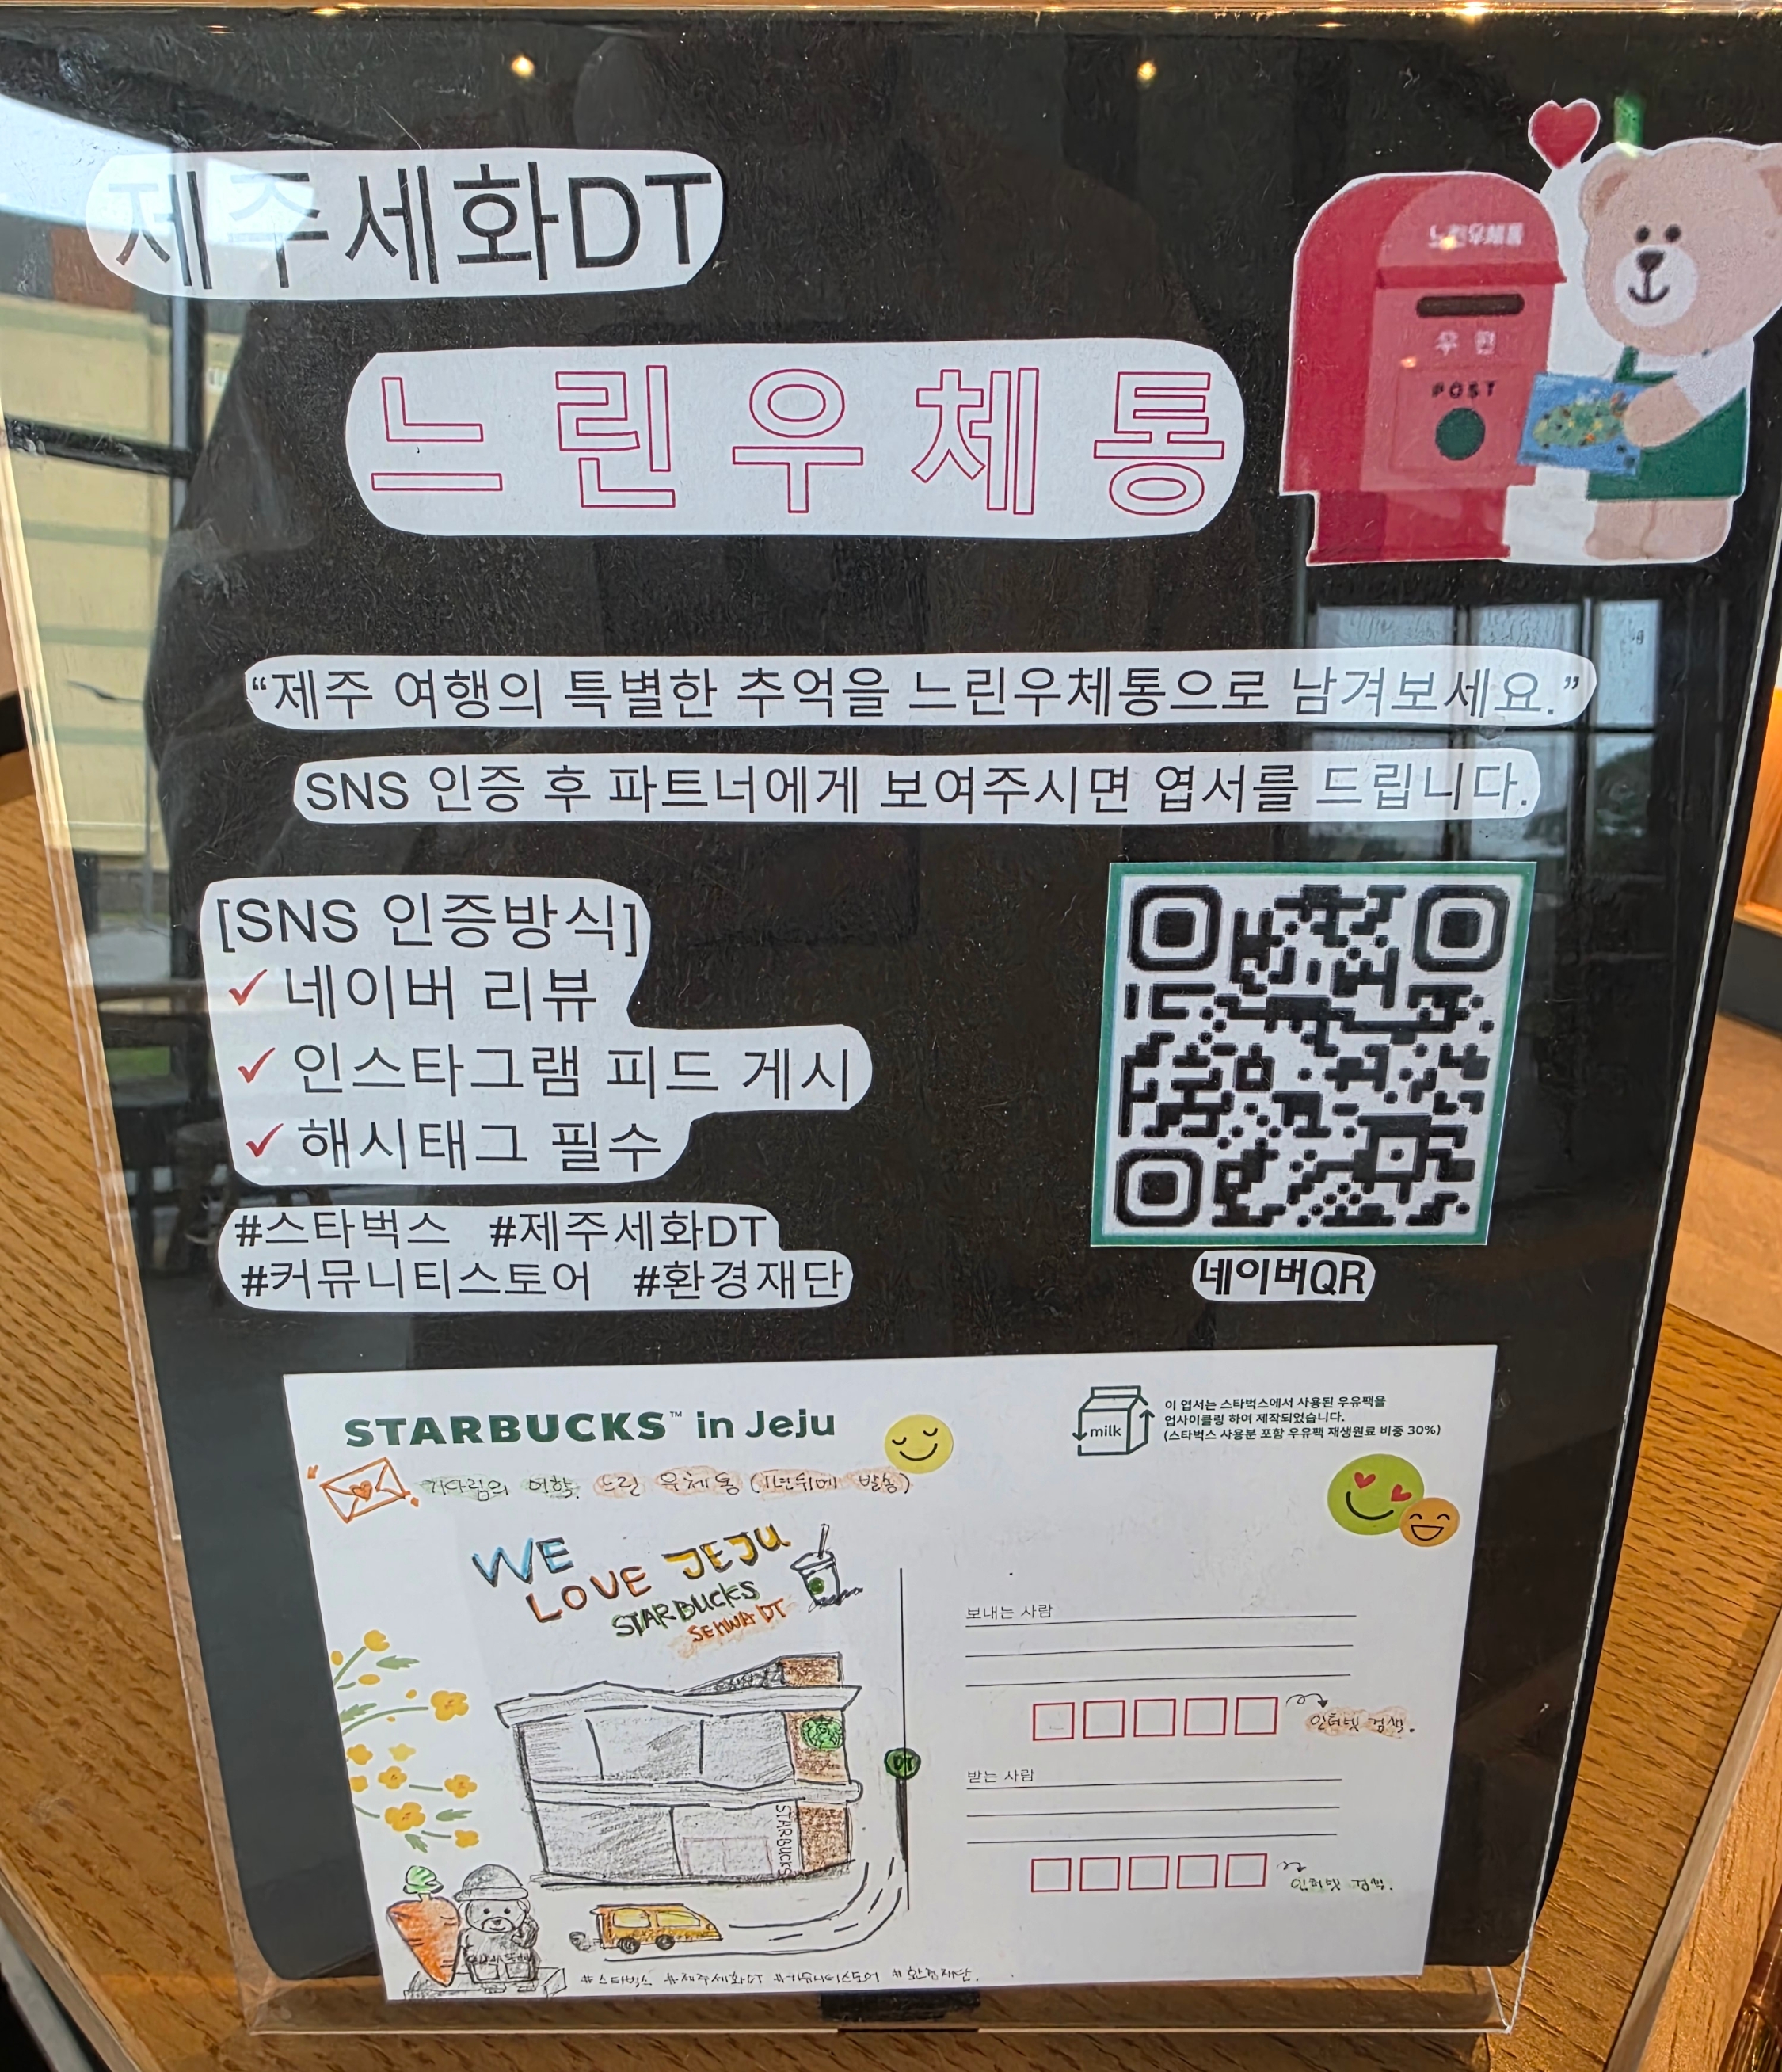 제주세화DT
느린우체통
느린우체통
우편
POST
“제주 여행의 특별한 추억을 느린우체통으로 남겨보세요.”
SNS 인증 후 파트너에게 보여주시면 엽서를 드립니다.
[SNS 인증방식]
✓ 네이버 리뷰
✓ 인스타그램 피드 게시
✓ 해시태그 필수
#스타벅스 #제주세화DT
#커뮤니티스토어 #환경재단
네이버QR
STARBUCKS™ in Jeju
milk
이 엽서는 스타벅스에서 사용된 우유팩을
업사이클링 하여 제작되었습니다.
(스타벅스 사용분 포함 우유팩 재생원료 비중 30%)
기다림의 미학. 느린 우체통 (1년뒤에 발송)
WE
LOVE JEJU
STARBUCKS
SEHWA DT
STARBUCKS
DT
보내는 사람
인터넷 검색.
받는 사람
인터넷 검색.
#스타벅스 #제주세화DT #커뮤니티스토어 #환경재단.